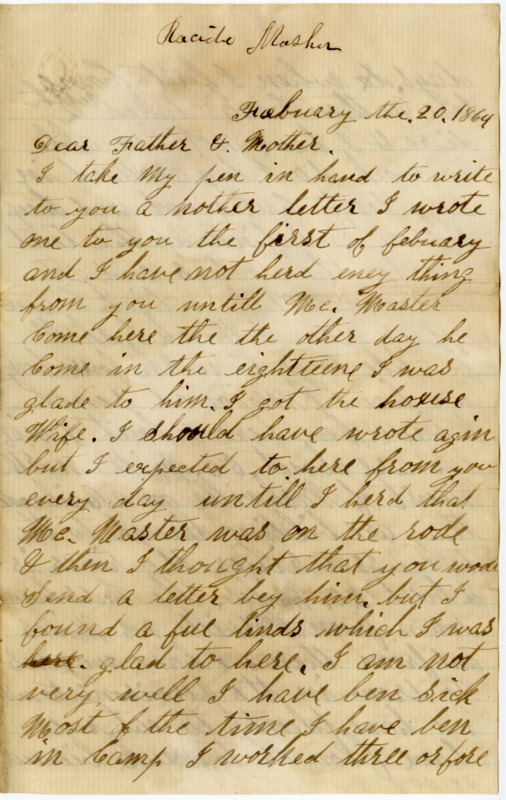 Placide Mosher
Febuary the. 20. 1864
Dear Father & Mother.
I take My pen in hand to write
to you a nother letter I wrote
one to you the first of febuary
and I have not herd eney thing
from you untill Mc. Master
Come here the the other day he
Come in the eighteene I was
glade to him. I got the house
Wife. I should have wrote agin
but I expected to here from you
every day untill I herd that
Mc. Master was on the rode
& then I thought that you woode
Send a letter bey him. but I
found a fue linds which I was
glad to here. I am not
very well I have ben Sick
Most f the time I have ben
in Camp I worked three or fore